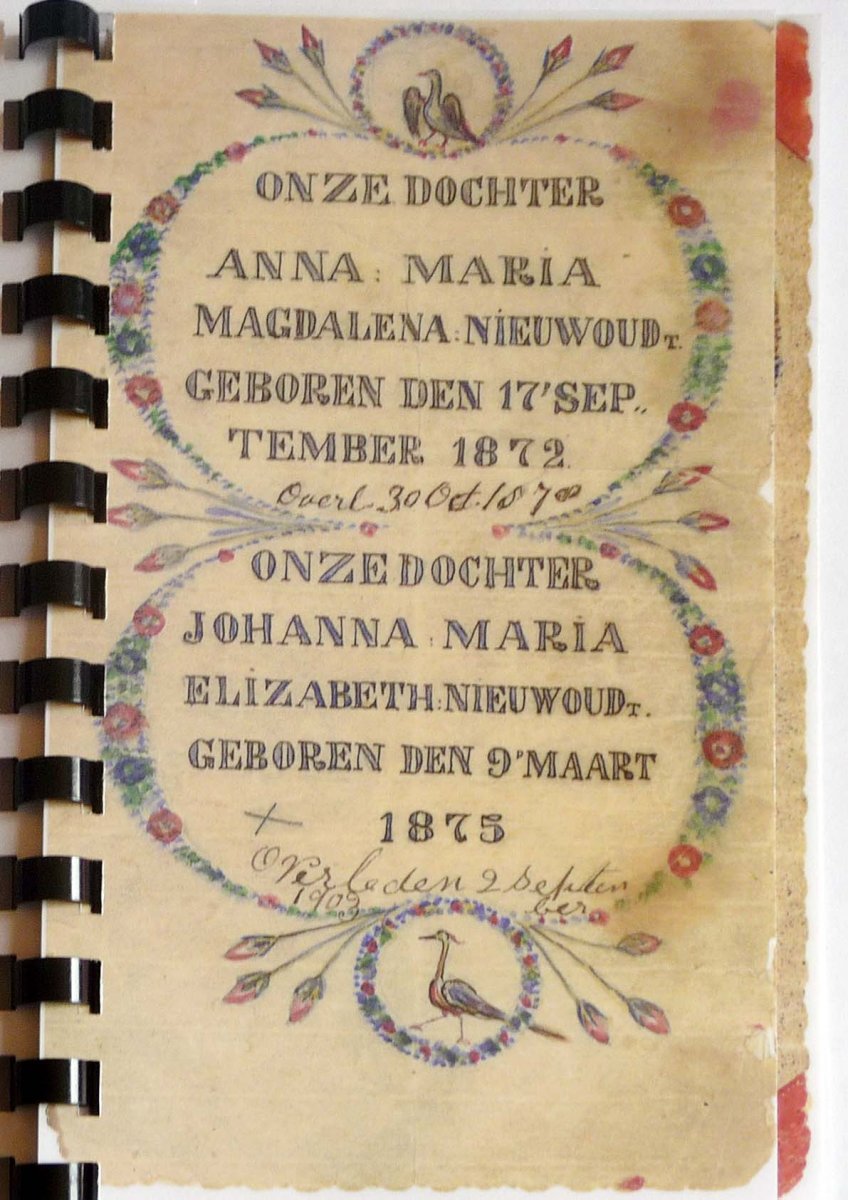 ONZE DOCHTER
ANNA : MARIA
MAGDALENA : NIEUWOUDT.
GEBOREN DEN 17' SEP„
TEMBER 1872.
Overl. 30 Oct. 1878
ONZE DOCHTER
JOHANNA : MARIA
ELIZABETH : NIEUWOUDT.
GEBOREN DEN 9' MAART
1875
Overleden 2 Septem
1903 ber